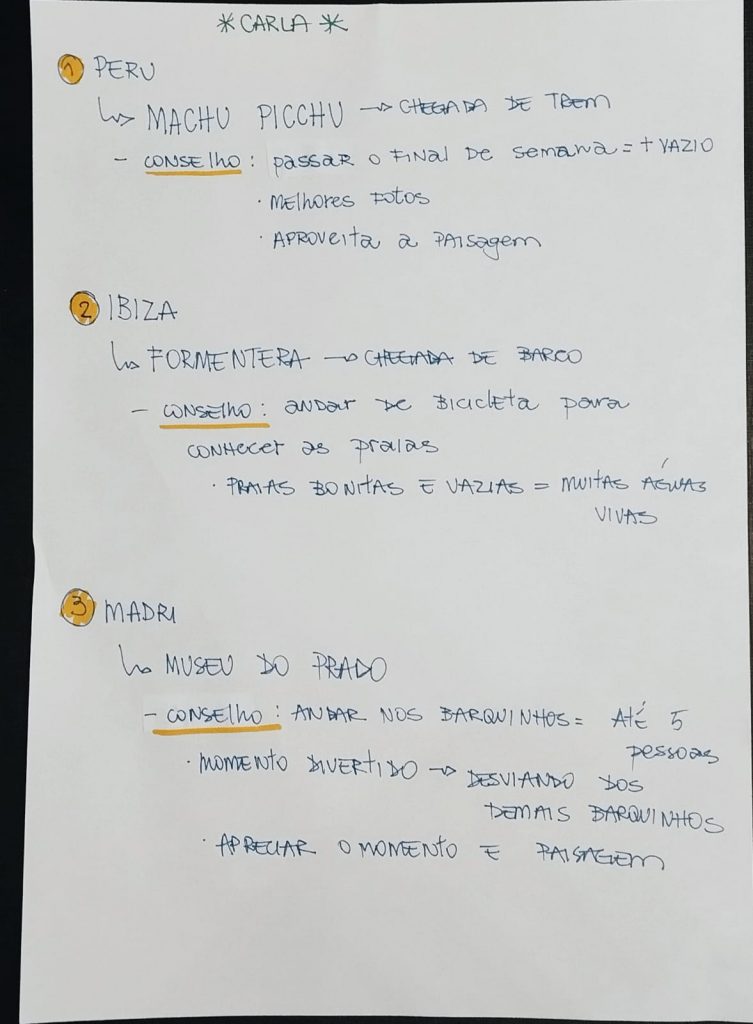 * CARLA *
1 PERU
↳ MACHU PICCHU → CHEGADA DE TREM
- CONSELHO : PASSAR O FINAL DE SEMANA = + VAZIO
· MELHORES FOTOS
· APROVEITA A PAISAGEM
2 IBIZA
↳ FORMENTERA → CHEGADA DE BARCO
- CONSELHO : ANDAR DE BICICLETA PARA
CONHECER AS PRAIAS
· PRAIAS BONITAS E VAZIAS = MUITAS ÁGUAS
VIVAS
3 MADRI
↳ MUSEU DO PRADO
- CONSELHO : ANDAR NOS BARQUINHOS = ATÉ 5
PESSOAS
· MOMENTO DIVERTIDO → DESVIANDO DOS
DEMAIS BARQUINHOS
· APRECIAR O MOMENTO E PAISAGEM